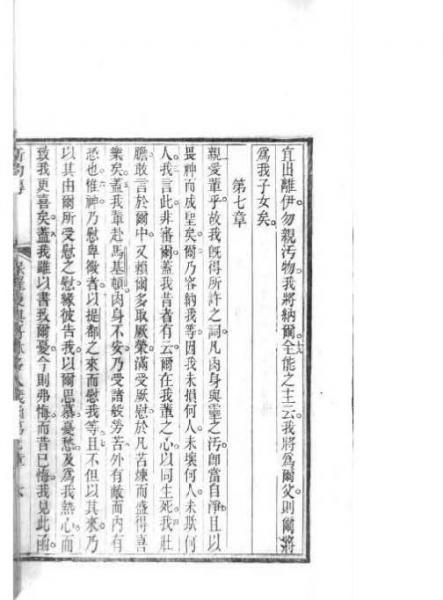 宜出離伊。勿親汚物。我將納爾。大全能之主云。我將爲爾父。則爾將
爲我子女矣。
第七章
親愛輩乎。故我既得所許之詞。凡肉身與靈之汚。卽當自淨。且以
畏神而成聖矣。爾乃容納我等。因我未損何人。未壞何人。未欺何
人。我言此非審爾。蓋我昔者有云。爾在我輩之心。以同生死。我壯
膽敢言於爾中。又賴爾多取厥榮。滿受厥慰。於凡苦煉而盛得喜
樂矣。蓋我輩赴馬基頓。肉身不安。乃受諸般勞苦。外有敵而内有
恐也。惟神乃慰卑微者。以提都之來而慰我等。且不但以其來。乃
以其由爾所受慰之慰。緣彼告我。以爾思慕憂愁。及爲我熱心。而
致我更喜矣。蓋我雖以書致爾憂。今則弗悔。而昔已悔。我見此函。